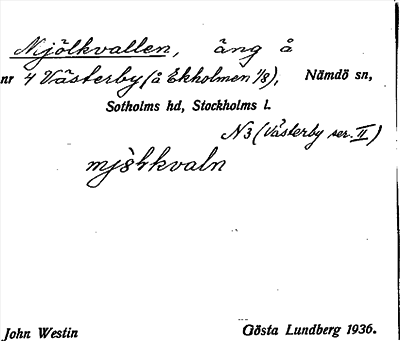 Mjölkvallen, äng å
nr 4 Västerby (å Ekholmen 1/8), Nämdö sn,
Sotholms hd, Stockholms l.
N3 (Västerby ser. II)
mjö̀lkvaln
John Westin Gösta Lundberg 1936.